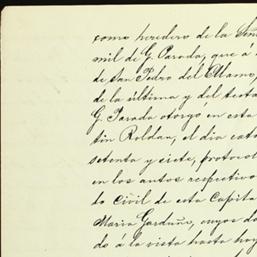 como heredero de la Seño
mil de G. Parada, que á
de San Pedro del Álamo,
de la última y del testa
G. Parada otorgó en esta
tin Roldan, el dia cato
setenta y siete, protocol
en los autos respectivo
to Civil de esta Capita
Maria Garduño, cuyos do
do á la vista hasta hoy